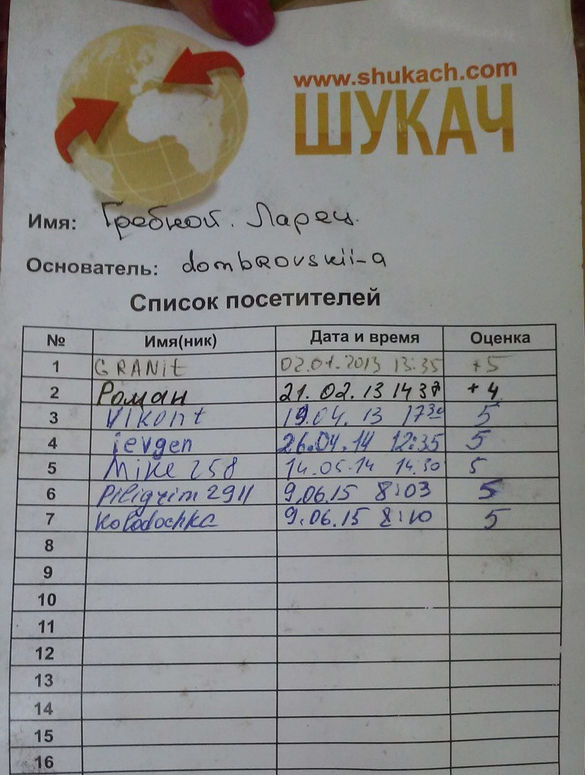 www.shukach.com
ШУКАЧ
Имя: Гребной. Ларец.
Основатель: dombrovskii-a
Список посетителей
№ Имя(ник) Дата и время Оценка
1 GRANit 02.01.2013 13:35 +5
2 Роман 21.02.13 1437 +4
3 Vikont 19.04.13 1730 5
4 ievgen 26.04.14 12:35 5
5 Mike 258 14.05.14 14.30 5
6 Piligrim2911 9.06.15 8:03 5
7 Kolodochka 9.06.15 8:10 5
8
9
10
11
12
13
14
15
16